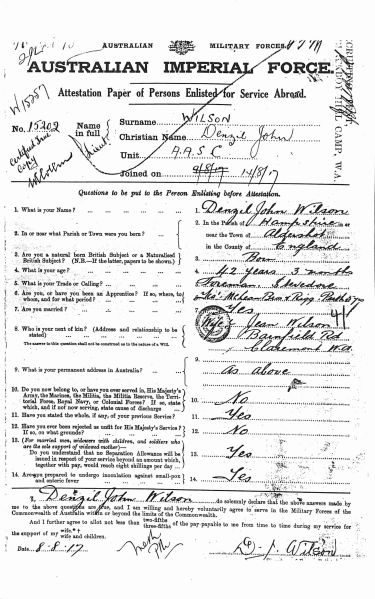 AUSTRALIAN MILITARY FORCES.
AUSTRALIAN IMPERIAL FORCE.
Attestation Paper of Persons Enlisted for Service Abroad.
W15257
No. 15202
Name in full
Surname WILSON
Christian Name Denzil John
Unit A.A.S.C
Joined on 9/8/17 14/8/17
Certified true copy
BLACKBOY HILL CAMP, W.A.
Questions to be put to the Person Enlisting before Attestation.
1. What is your Name? 1. Denzil John Wilson
2. In or near what Parish or Town were you born? 2. In the Parish of Hampshire in or
near the Town of Aldershot
in the County of England
3. Are you a natural born British Subject or a Naturalised
British Subject? (N.B.—If the latter, papers to be shown.) 3. Born
4. What is your age? 4. 42 years 3 months
5. What is your Trade or Calling? 5. Foreman
6. Are you, or have you been an Apprentice? If so, where,
to whom, and for what period? 6.
7. Are you married? 7. Yes
8. Who is your next of kin? (Address and relationship to be
stated) 8. Wife Jean Wilson
The answer to this question shall not be construed as in the nature of a Will.
Claremont W.A
9. What is your permanent address in Australia? 9. As above
10. Do you now belong to, or have you ever served in, His Majesty's
Army, the Marines, the Militia, the Militia Reserve, the Terri-
torial Force, Royal Navy, or Colonial Forces? If so, state
which, and if not now serving, state cause of discharge 10. No
11. Have you stated the whole, if any, of your previous Service? 11. Yes
12. Have you ever been rejected as unfit for His Majesty's Service?
If so, on what grounds? 12. No
13. (For married men, widowers with children, and soldiers who
are the sole support of widowed mother—
Do you understand that no Separation Allowance will be
issued in respect of your service beyond an amount which,
together with pay, would reach eight shillings per day 13. Yes
14. Are you prepared to undergo inoculation against small-pox
and enteric fever 14. Yes
I, Denzil John Wilson do solemnly declare that the above answers made by
me to the above questions are true, and I am willing and hereby voluntarily agree to serve in the Military Forces of the
Commonwealth of Australia within or beyond the limits of the Commonwealth.
And I further agree to allot not less than two-fifths three-fifths of the pay payable to me from time to time during my service for
the support of my wife.*† wife and children.
Date 8-8-17
D. J. Wilson